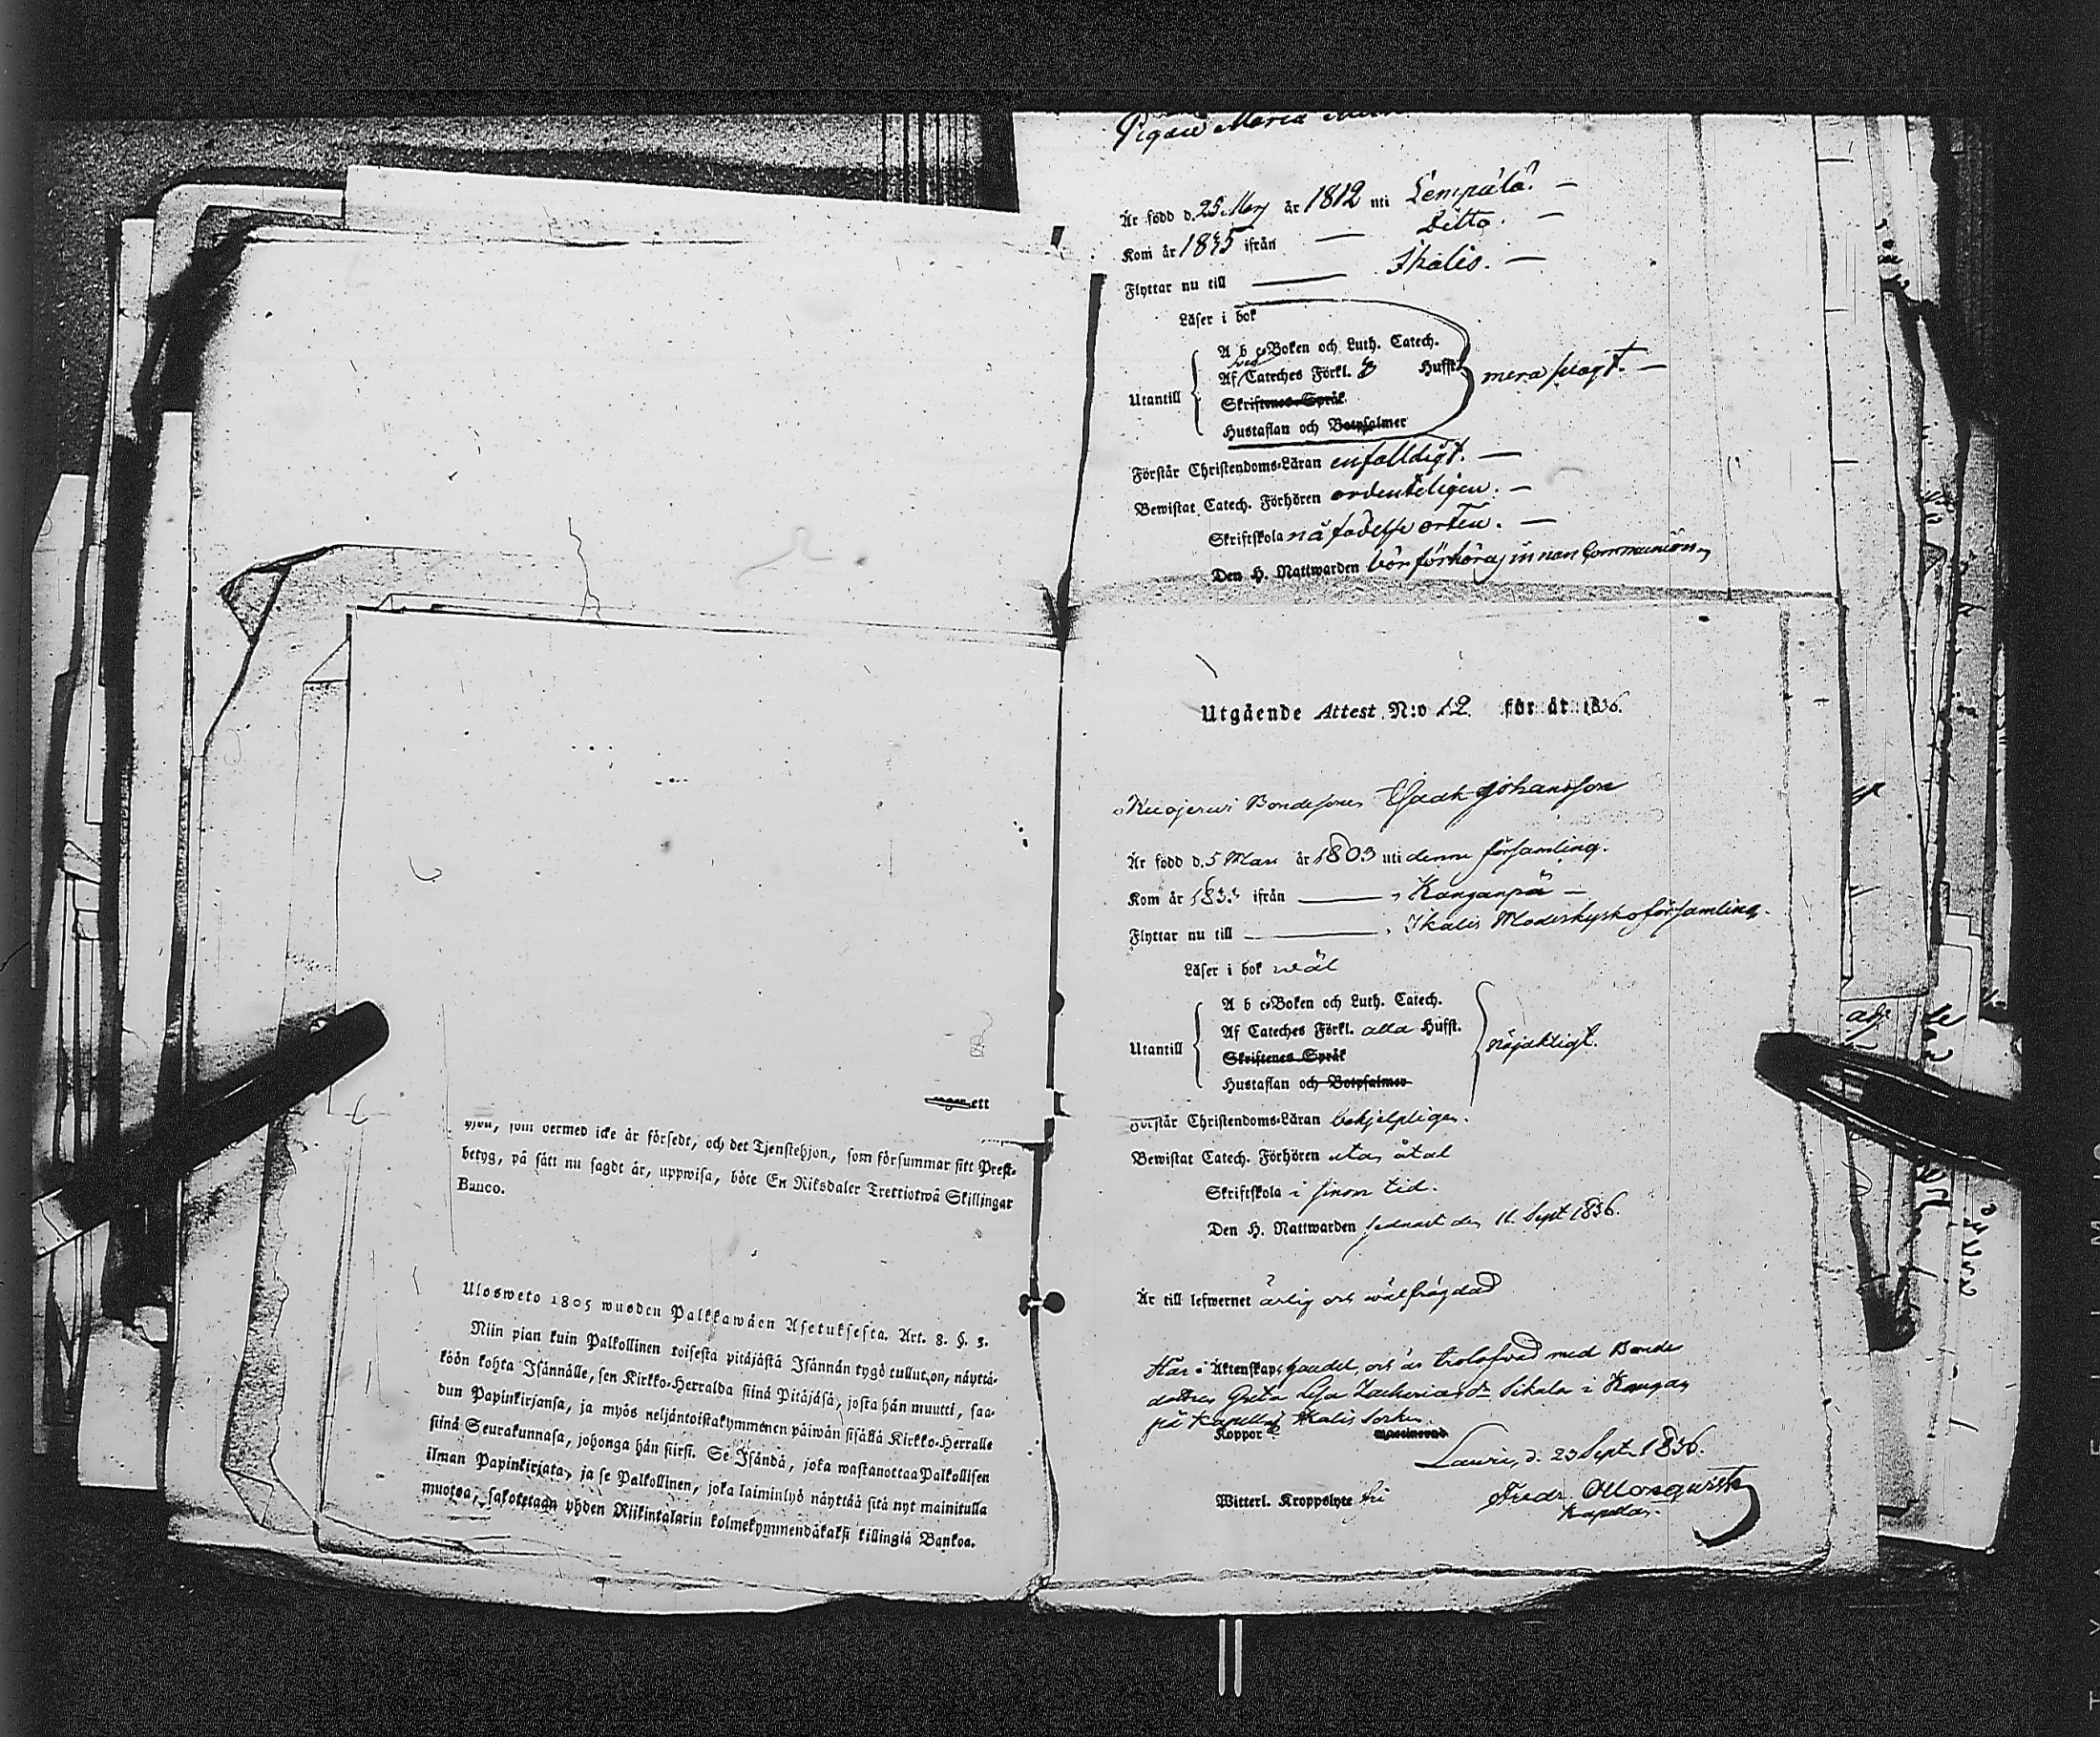 Pigan Maria
Är född d. 25 Marz år 1812 uti Lempälä. —
Kom år 1835 ifrån — Ditto. —
Flyttar nu till — Ikalis. —
Läser i bok
A b c-Boken och Luth. Catech.
Af Cateches Förkl. Hufst.
Utantill
mera svagt. —
Skriftenes Språk
Hustaflan och Botpsalmer
Förstår Christendoms-Läran enfalldigt. —
Bewistat Catech. Förhören ordenteligen. —
Skriftskola på födelse orten. —
Den H. Nattwarden bör förhöras innan Communion
Utgående Attest N:o 12 för år 1836.
Bondesonen Isaak Johansson
Är född d. 5 Mars år 1803 uti denna församling.
Kom år 183 ifrån — Kanganpä —
Flyttar nu till — Ikalis Moderkyrkoförsamling.
Läser i bok wäl
A b c-Boken och Luth. Catech.
Af Cateches Förkl. alla Hufst.
Utantill
nöjaktigt.
Skriftenes Språk
Hustaflan och Botpsalmer
Förstår Christendoms-Läran behjelpligen.
Bewistat Catech. Förhören utan åtal
Skriftskola i sinom tid.
Den H. Nattwarden sednast den 11 Sept 1836.
Är till lefwernet ärlig och wälfrägdad
Har i Äktenskap och är trolofwad med Bonde
dottren Greta Lisa Zachariasdr Sikala i Kangan
pä Kapell af Ikalis Sorken.
Koppor
vaccinerad
Lawia, d. 23 Sept. 1836.
Witterl. Kroppslyte fri
Fredr.
Kapellan.
ett
hjon, som dermed icke är försedt, och det Tjenstehjon, som försummar sitt Prest-
betyg, på sätt nu sagdt är, uppwisa, böte En Riksdaler Trettiotwå Skillingar
Banco.
Ulosweto 1805 wuoden Palkkawäen Asetuksesta. Art. 8. §. 3.
Niin pian kuin Palkollinen toisesta pitäjästä Isännän tygö tullut on, näyttä-
köön kohta Isännälle, sen Kirkko-Herralda siinä Pitäjäsä, josta hän muutti, saa-
dun Papinkirjansa, ja myös neljäntoistakymmenen päiwän sisällä Kirkko-Herralle
siinä Seurakunnasa, johonga hän siirsi. Se Isändä, joka wastanottaa Palkollisen
ilman Papinkirjata, ja se Palkollinen, joka laiminlyö näyttää sitä nyt mainitulla
muotoa, sakotetaan yhden Riikintalarin kolmekymmendäkaksi killingiä Bankoa.